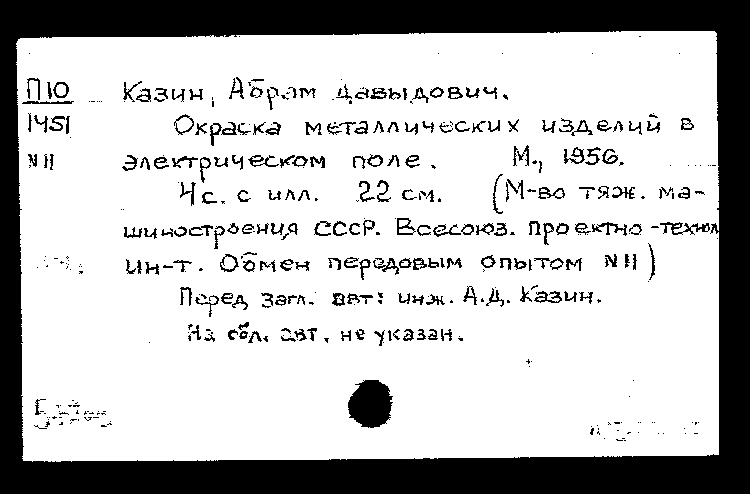 П10 Казин, Абрам Давыдович.
1451 Окраска металлических изделий в
N11 электрическом поле. М., 1956.
4с. с илл. 22 см. (М-во тяж. ма-
шиностроения СССР. Всесоюз. проектно-технол
ин-т. Обмен передовым опытом N11)
Перед загл. авт: инж. А.Д. Казин.
На обл. авт. не указан.